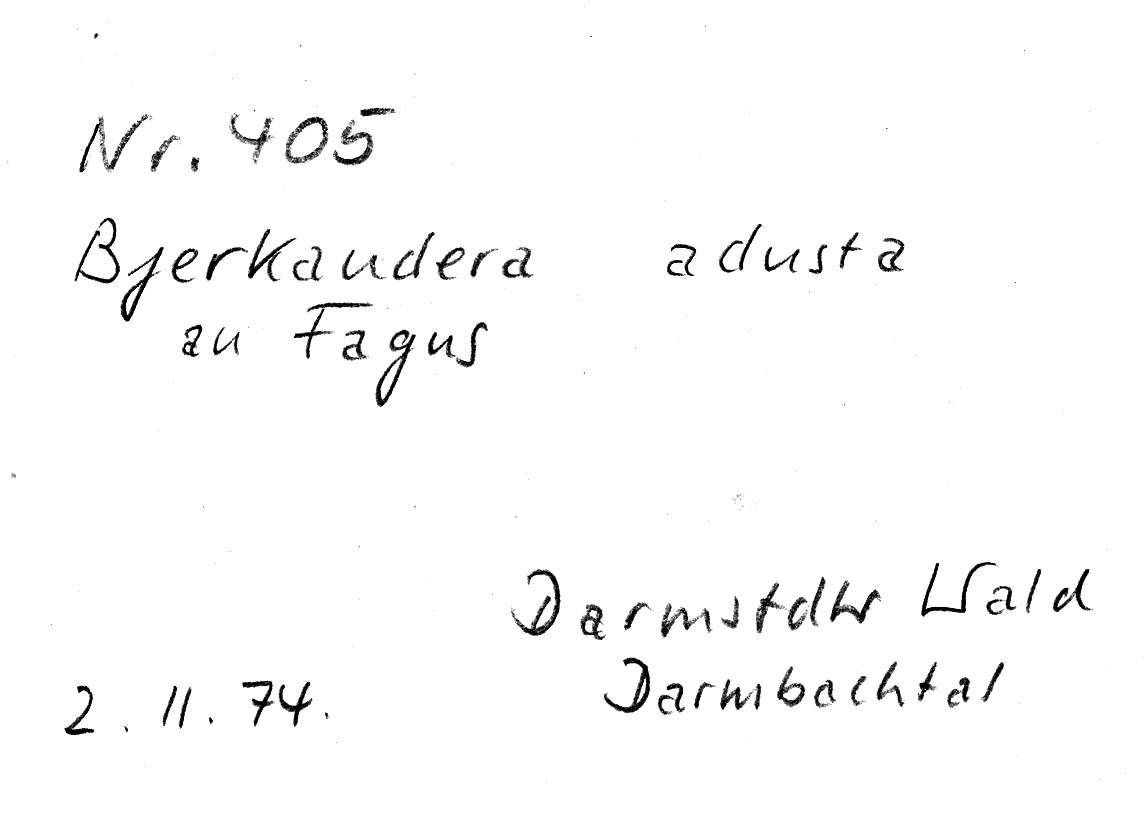 Nr. 405
Bjerkandera adusta
an Fagus
Darmstdtr Wald
Darmbachtal
2. 11. 74.